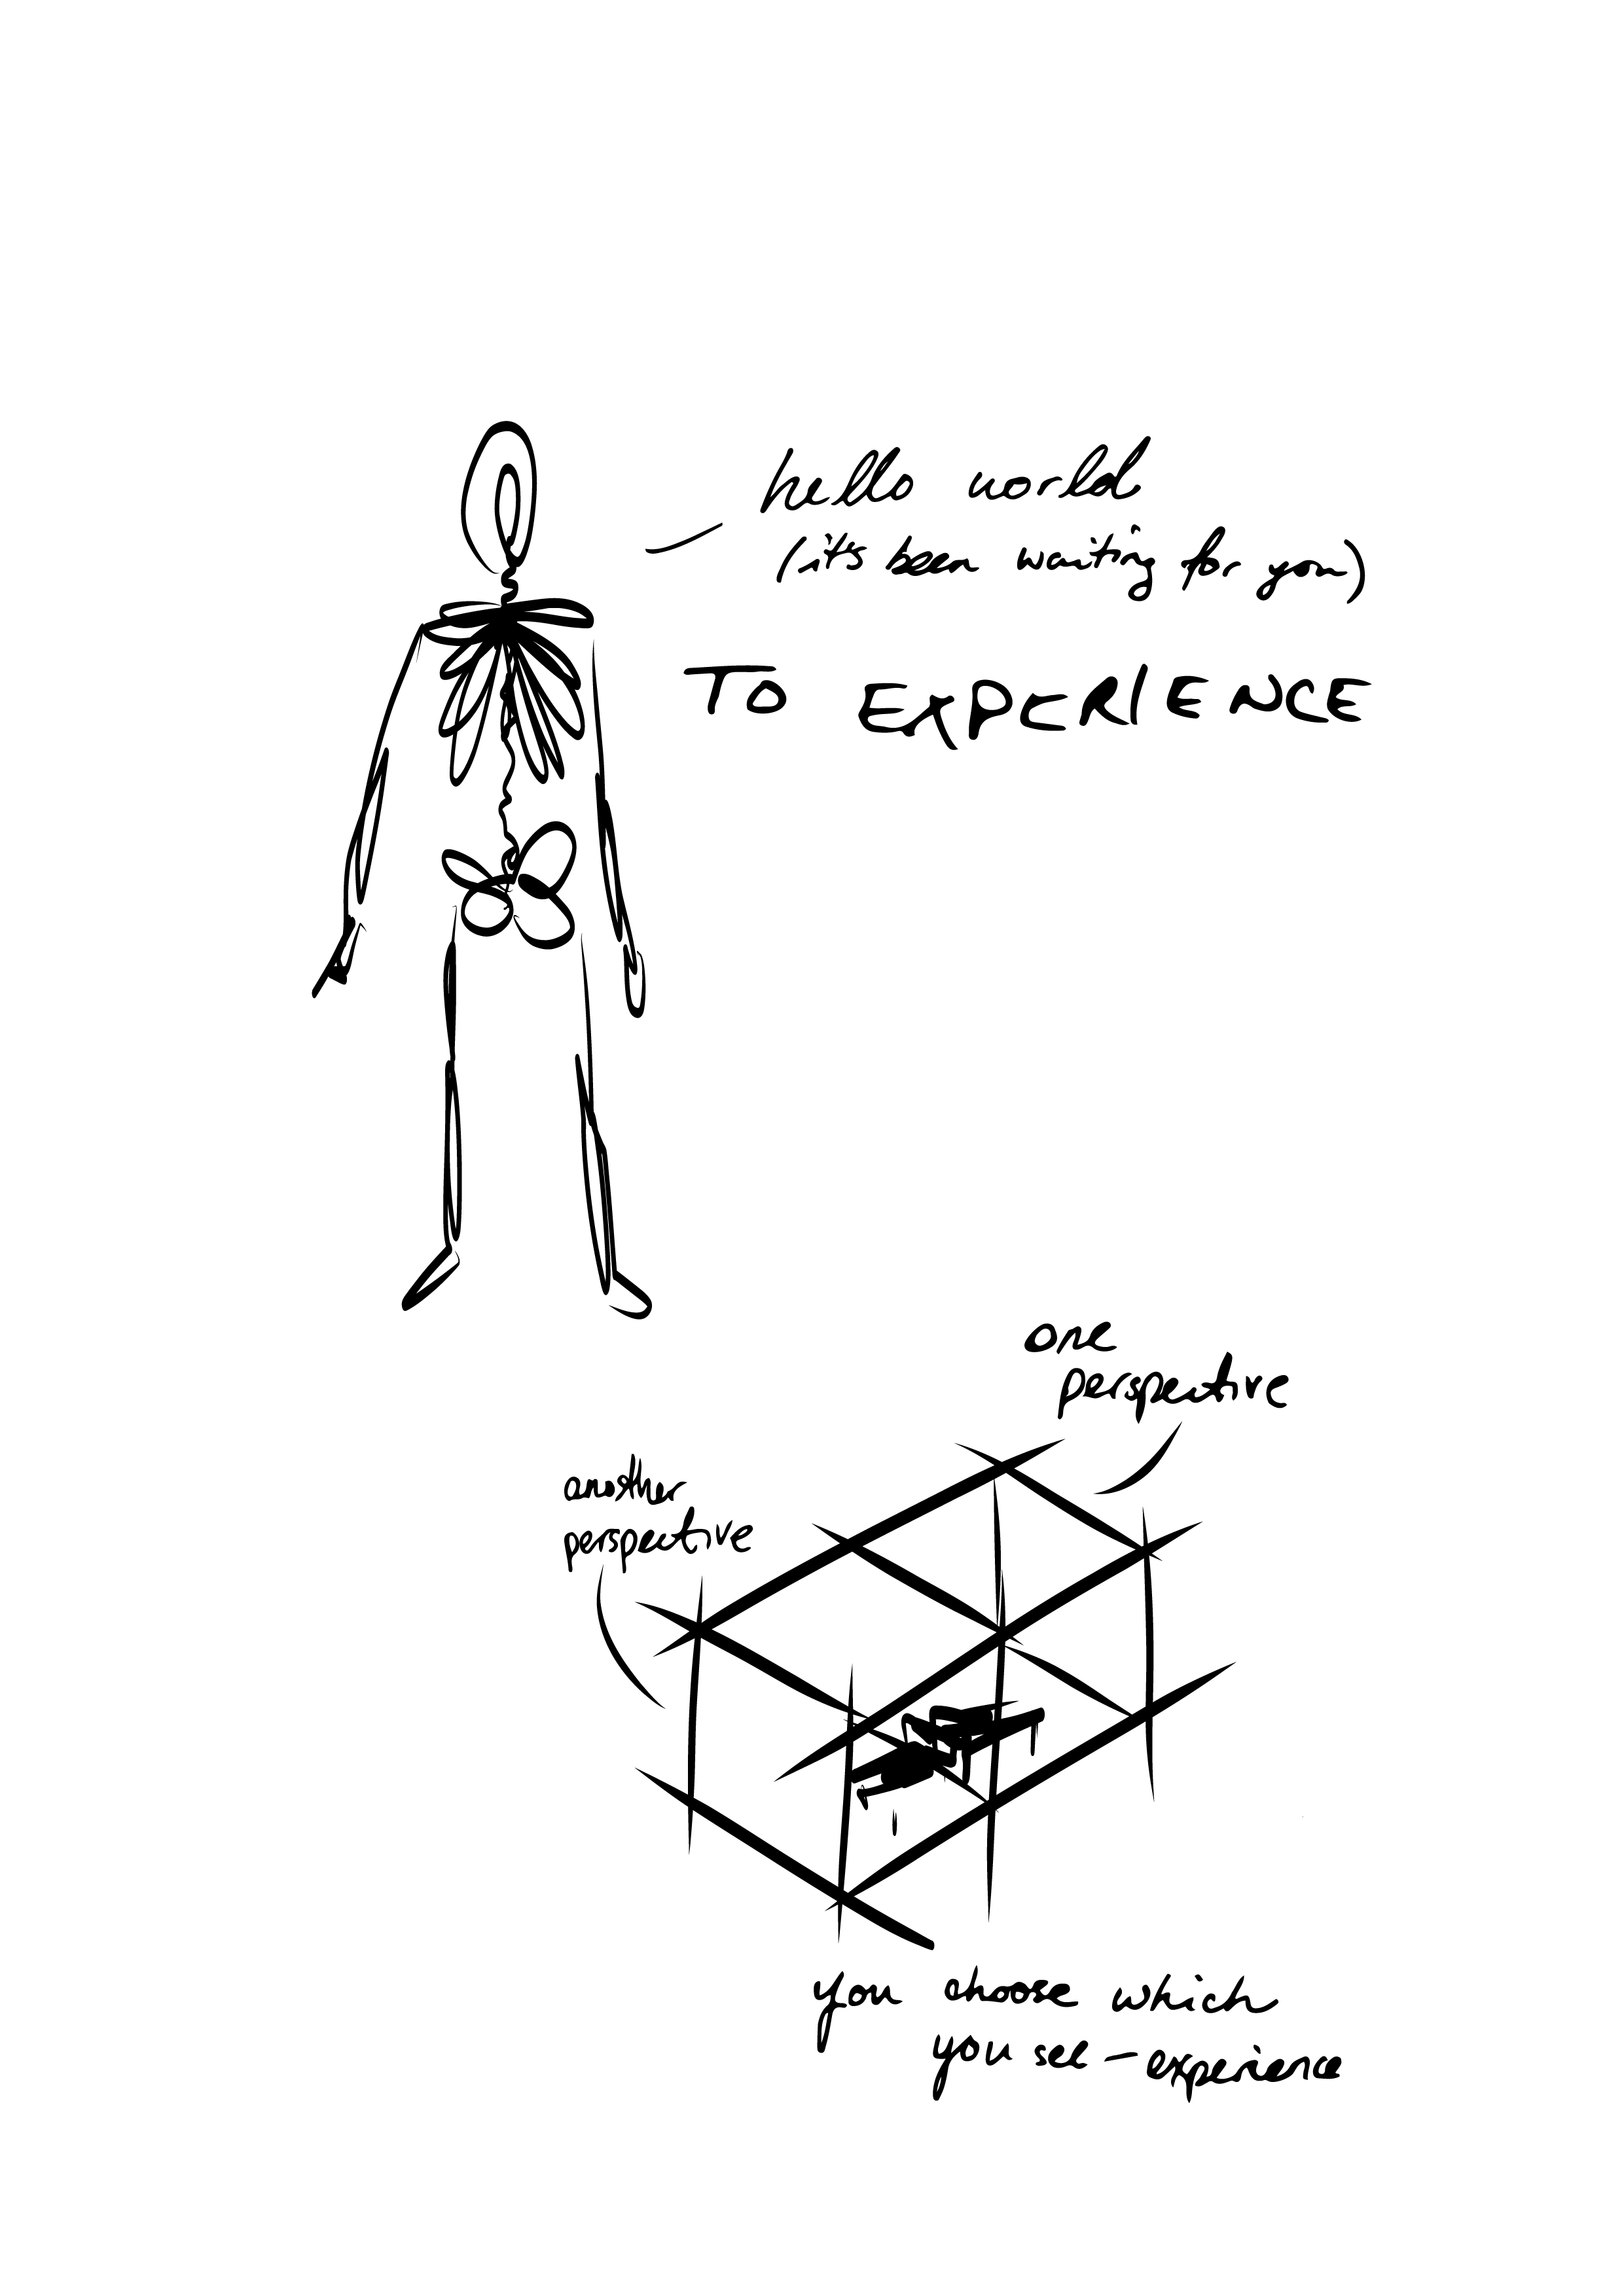 hello world
(it's been waiting for you)
TO EXPERIENCE
one
perspective
another
perspective
you choose which
you see – experience